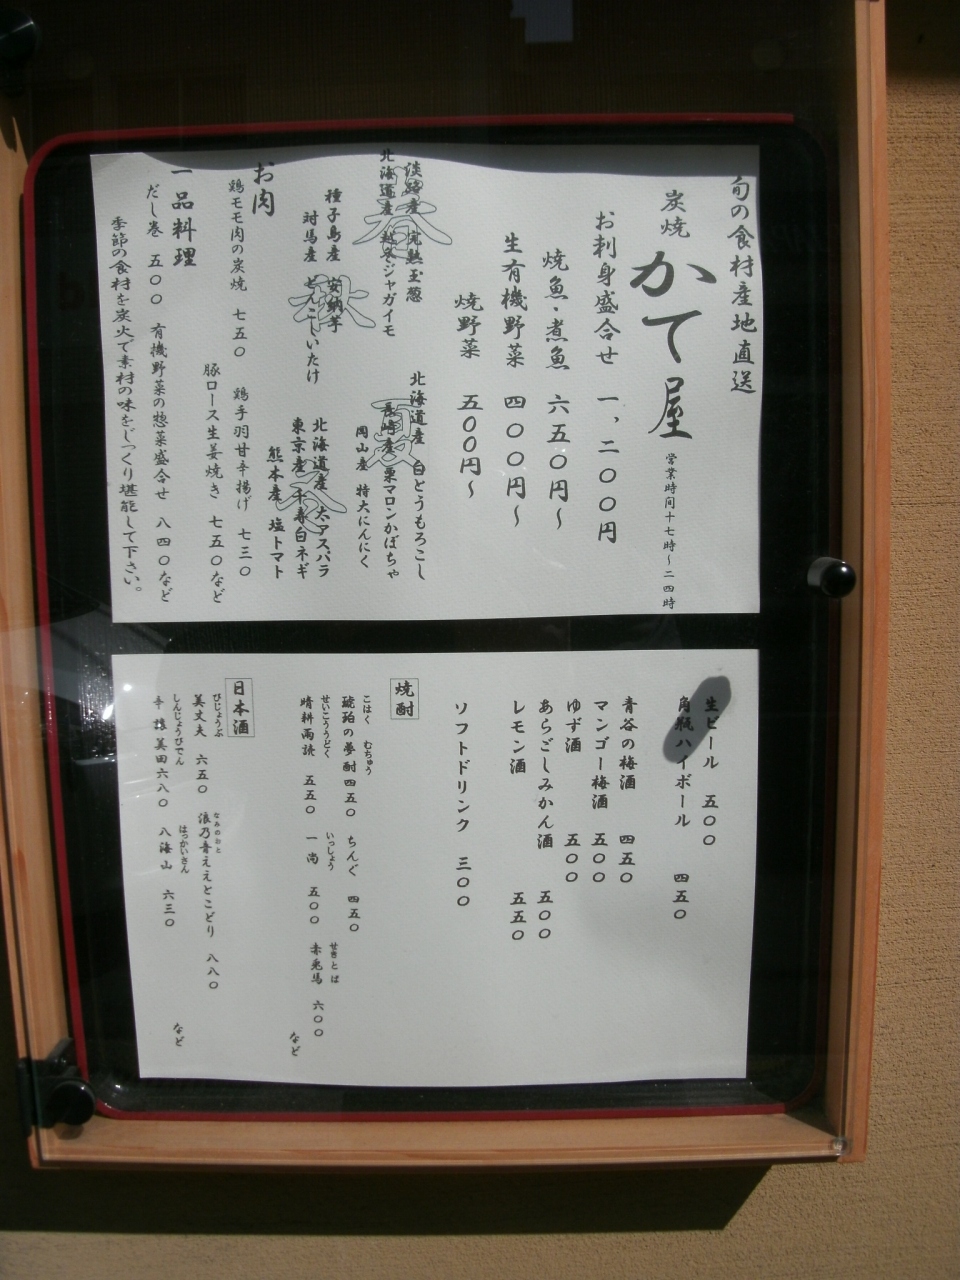 旬の食材産地直送
炭焼 かて屋 営業時間十七時～二四時
お刺身盛合せ 一,二〇〇円
焼魚・煮魚 六五〇円～
生有機野菜 四〇〇円～
焼野菜 五〇〇円～
春
淡路産 完熟玉葱
北海道産 越冬ジャガイモ
夏
北海道産 白とうもろこし
長崎産 栗マロンかぼちゃ
岡山産 特大にんにく
秋
種子島産 安納芋
対馬産 どんこしいたけ
冬
北海道産 太アスパラ
東京産 千寿白ネギ
熊本産 塩トマト
お肉
鶏モモ肉の炭焼 七五〇 鶏手羽甘辛揚げ 七三〇
豚ロース生姜焼き 七五〇など
一品料理
だし巻 五〇〇 有機野菜の惣菜盛合せ 八四〇など
季節の食材を炭火で素材の味をじっくり堪能して下さい。
生ビール 五〇〇
角瓶ハイボール 四五〇
青谷の梅酒 四五〇
マンゴー梅酒 五〇〇
ゆず酒 五〇〇
あらごしみかん酒 五〇〇
レモン酒 五五〇
ソフトドリンク 三〇〇
焼酎
こはく むちゅう
琥珀の夢酎 四五〇 ちんぐ 四五〇
せいこううどく いっしょう せきとば
晴耕雨読 五五〇 一尚 五〇〇 赤兎馬 六〇〇
など
日本酒
びじょうぶ なみのおと
美丈夫 六五〇 浪乃音ええとこどり 八八〇
しんじょうびでん はっかいさん
辛譲美田 六八〇 八海山 六三〇
など